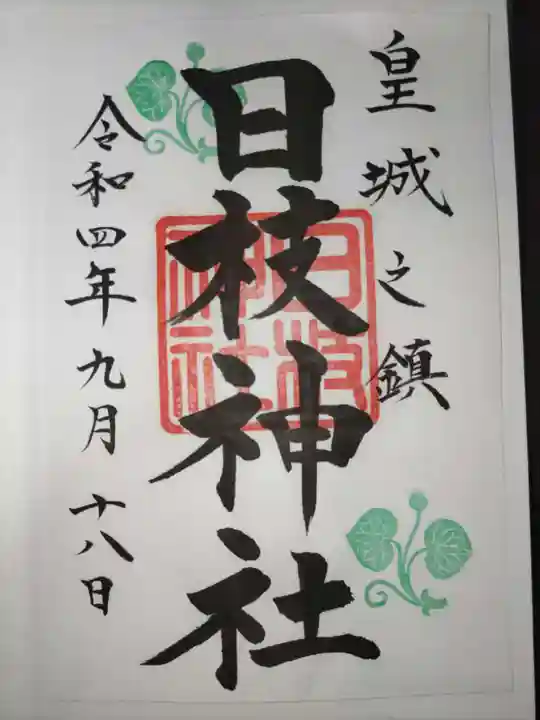 皇城之鎮
日枝神社
日枝神社
令和四年九月十八日